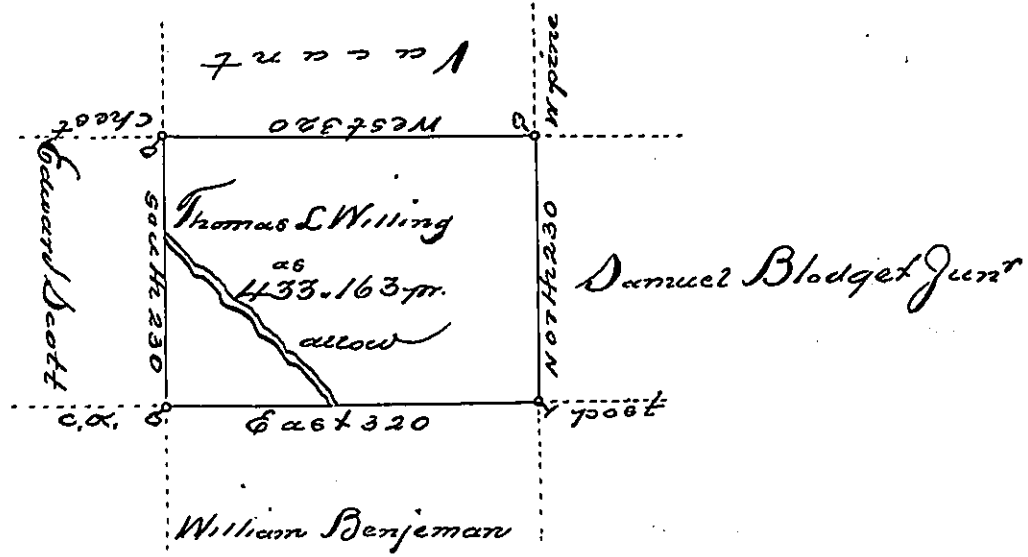 Vacant
W pine
Chest
West 320
Edward Scott
South 230
Thomas L Willing
as
433.163 pr.
allow
North 230
Samuel Blodget Junr
C.O.
East 320
post
William Benjeman